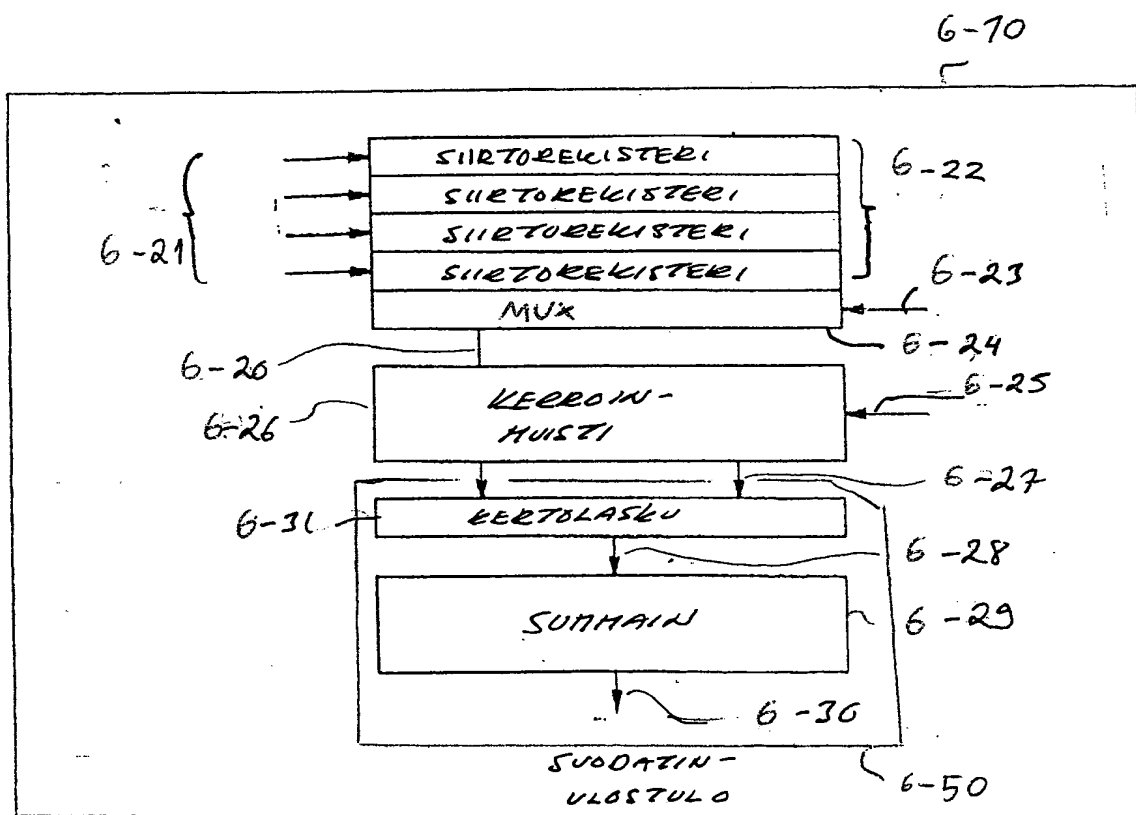 6-70
SIIRTOREKISTERI
6-22
SIIRTOREKISTERI
SIIRTOREKISTERI
6-21
SIIRTOREKISTERI
6-23
MUX
6-24
6-20
6-25
KERROIN-
MUISTI
6-26
6-27
6-31
KERTOLASKU
6-28
SUMMAIN
6-29
6-30
SUODATIN-
ULOSTULO
6-50